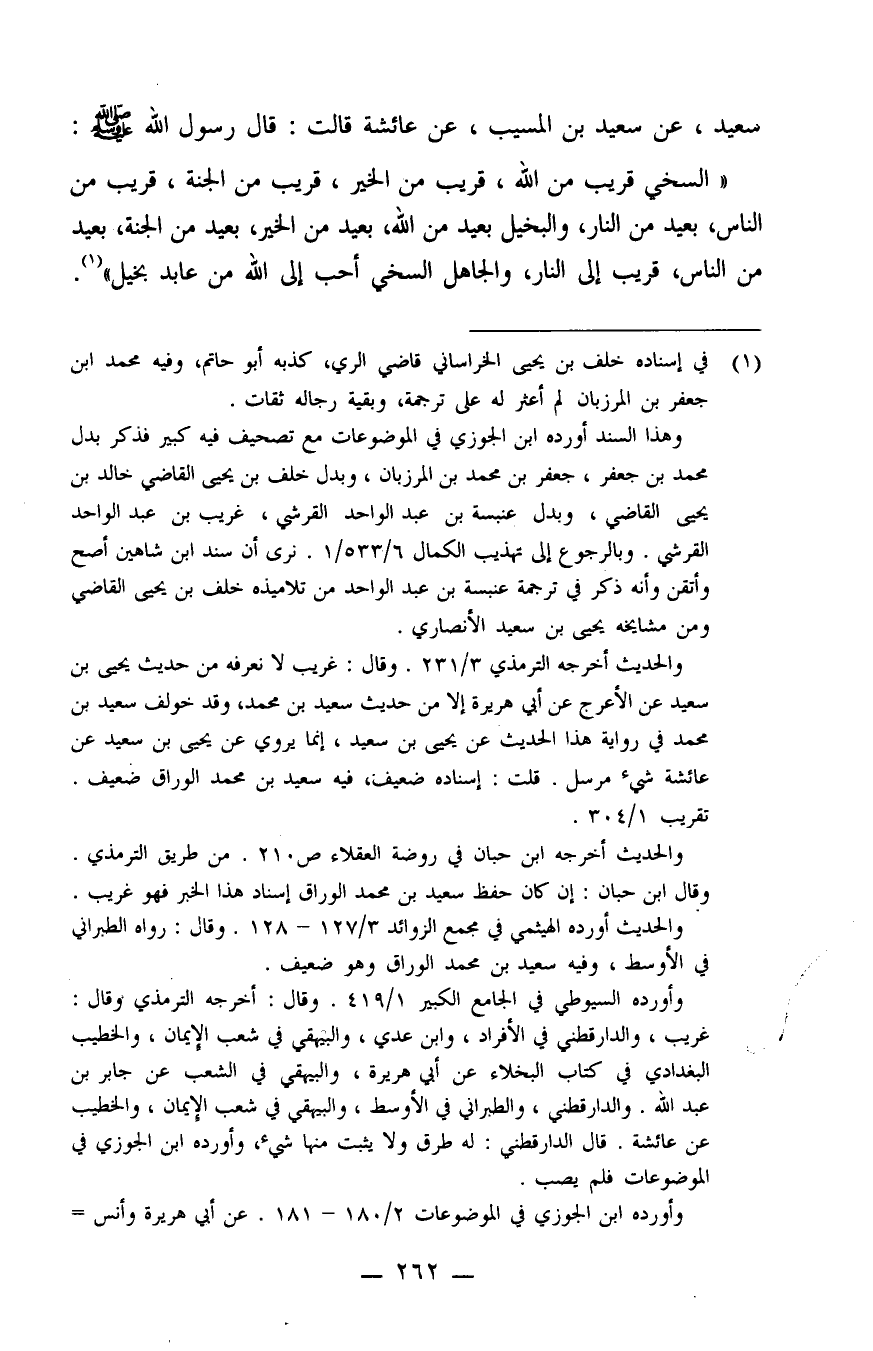 سعيد ، عن سعيد بن المسيب ، عن عائشة قالت : قال رسول الله ﷺ :
« السخي قريب من الله ، قريب من الخير ، قريب من الجنة ، قريب من
الناس، بعيد من النار، والبخيل بعيد من الله، بعيد من الخير، بعيد من الجنة، بعيد
من الناس، قريب إلى النار، والجاهل السخي أحب إلى الله من عابد بخيل»(١).
(١) في إسناده خلف بن يحيى الخراساني قاضي الري، كذبه أبو حاتم، وفيه محمد ابن
جعفر بن المرزبان لم أعثر له على ترجمة، وبقية رجاله ثقات .
وهذا السند أورده ابن الجوزي في الموضوعات مع تصحيف فيه كبير فذكر بدل
محمد بن جعفر ، جعفر بن محمد بن المرزبان ، وبدل خلف بن يحيى القاضي خالد بن
يحيى القاضي ، وبدل عنبسة بن عبد الواحد القرشي ، غريب بن عبد الواحد
القرشي . وبالرجوع إلى تهذيب الكمال ١/٥٣٣/٦ . نرى أن سند ابن شاهين أصح
وأتقن وأنه ذكر في ترجمة عنبسة بن عبد الواحد من تلاميذه خلف بن يحيى القاضي
ومن مشايخه يحيى بن سعيد الأنصاري .
والحديث أخرجه الترمذي ٢٣١/٣ . وقال : غريب لا نعرفه من حديث يحيى بن
سعيد عن الأعرج عن أبي هريرة إلا من حديث سعيد بن محمد، وقد خولف سعيد بن
محمد في رواية هذا الحديث عن يحيى بن سعيد ، إنما يروي عن يحيى بن سعيد عن
عائشة شيء مرسل . قلت : إسناده ضعيف، فيه سعيد بن محمد الوراق ضعيف .
تقريب ٣٠٤/١ .
والحديث أخرجه ابن حبان في روضة العقلاء ص٢١٠ . من طريق الترمذي .
وقال ابن حبان : إن كان حفظ سعيد بن محمد الوراق إسناد هذا الخبر فهو غريب .
والحديث أورده الهيثمي في مجمع الزوائد ١٢٧/٣ – ١٢٨ . وقال : رواه الطبراني
في الأوسط ، وفيه سعيد بن محمد الوراق وهو ضعيف .
وأورده السيوطي في الجامع الكبير ٤١٩/١ . وقال : أخرجه الترمذي وقال :
غريب ، والدارقطني في الأفراد ، وابن عدي ، والبيهقي في شعب الإيمان ، والخطيب
البغدادي في كتاب البخلاء عن أبي هريرة ، والبيهقي في الشعب عن جابر بن
عبد الله . والدارقطني ، والطبراني في الأوسط ، والبيهقي في شعب الإيمان ، والخطيب
عن عائشة . قال الدارقطني : له طرق ولا يثبت منها شيء، وأورده ابن الجوزي في
الموضوعات فلم يصب .
وأورده ابن الجوزي في الموضوعات ١٨٠/٢ – ١٨١ . عن أبي هريرة وأنس =
— ٢٦٢ —